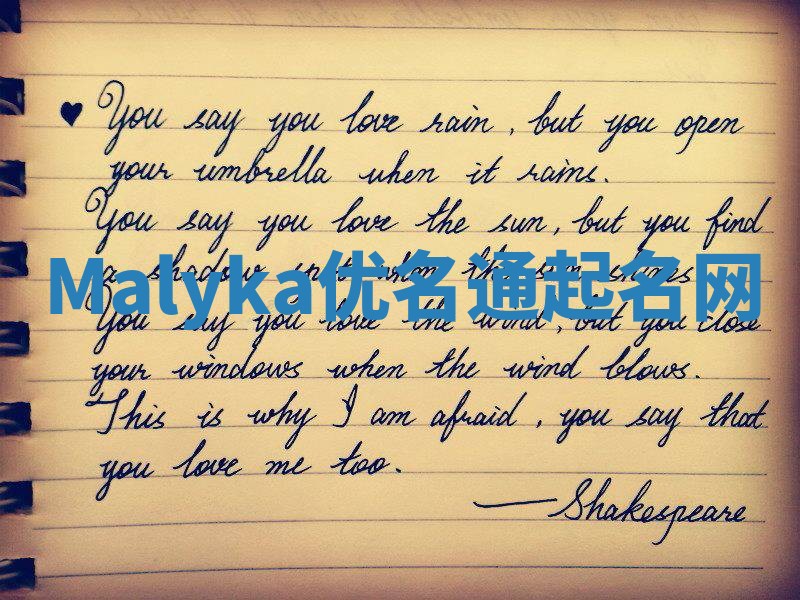 ♥ You say you love rain, but you open
your umbrella when it rains.
You say you love the sun, but you find
a shadow spot when the sun shines
Malyka优名通起名网
You say you love the wind, but you close
your windows when the wind blows.
This is why I am afraid, you say that
you love me too.
— Shakespeare